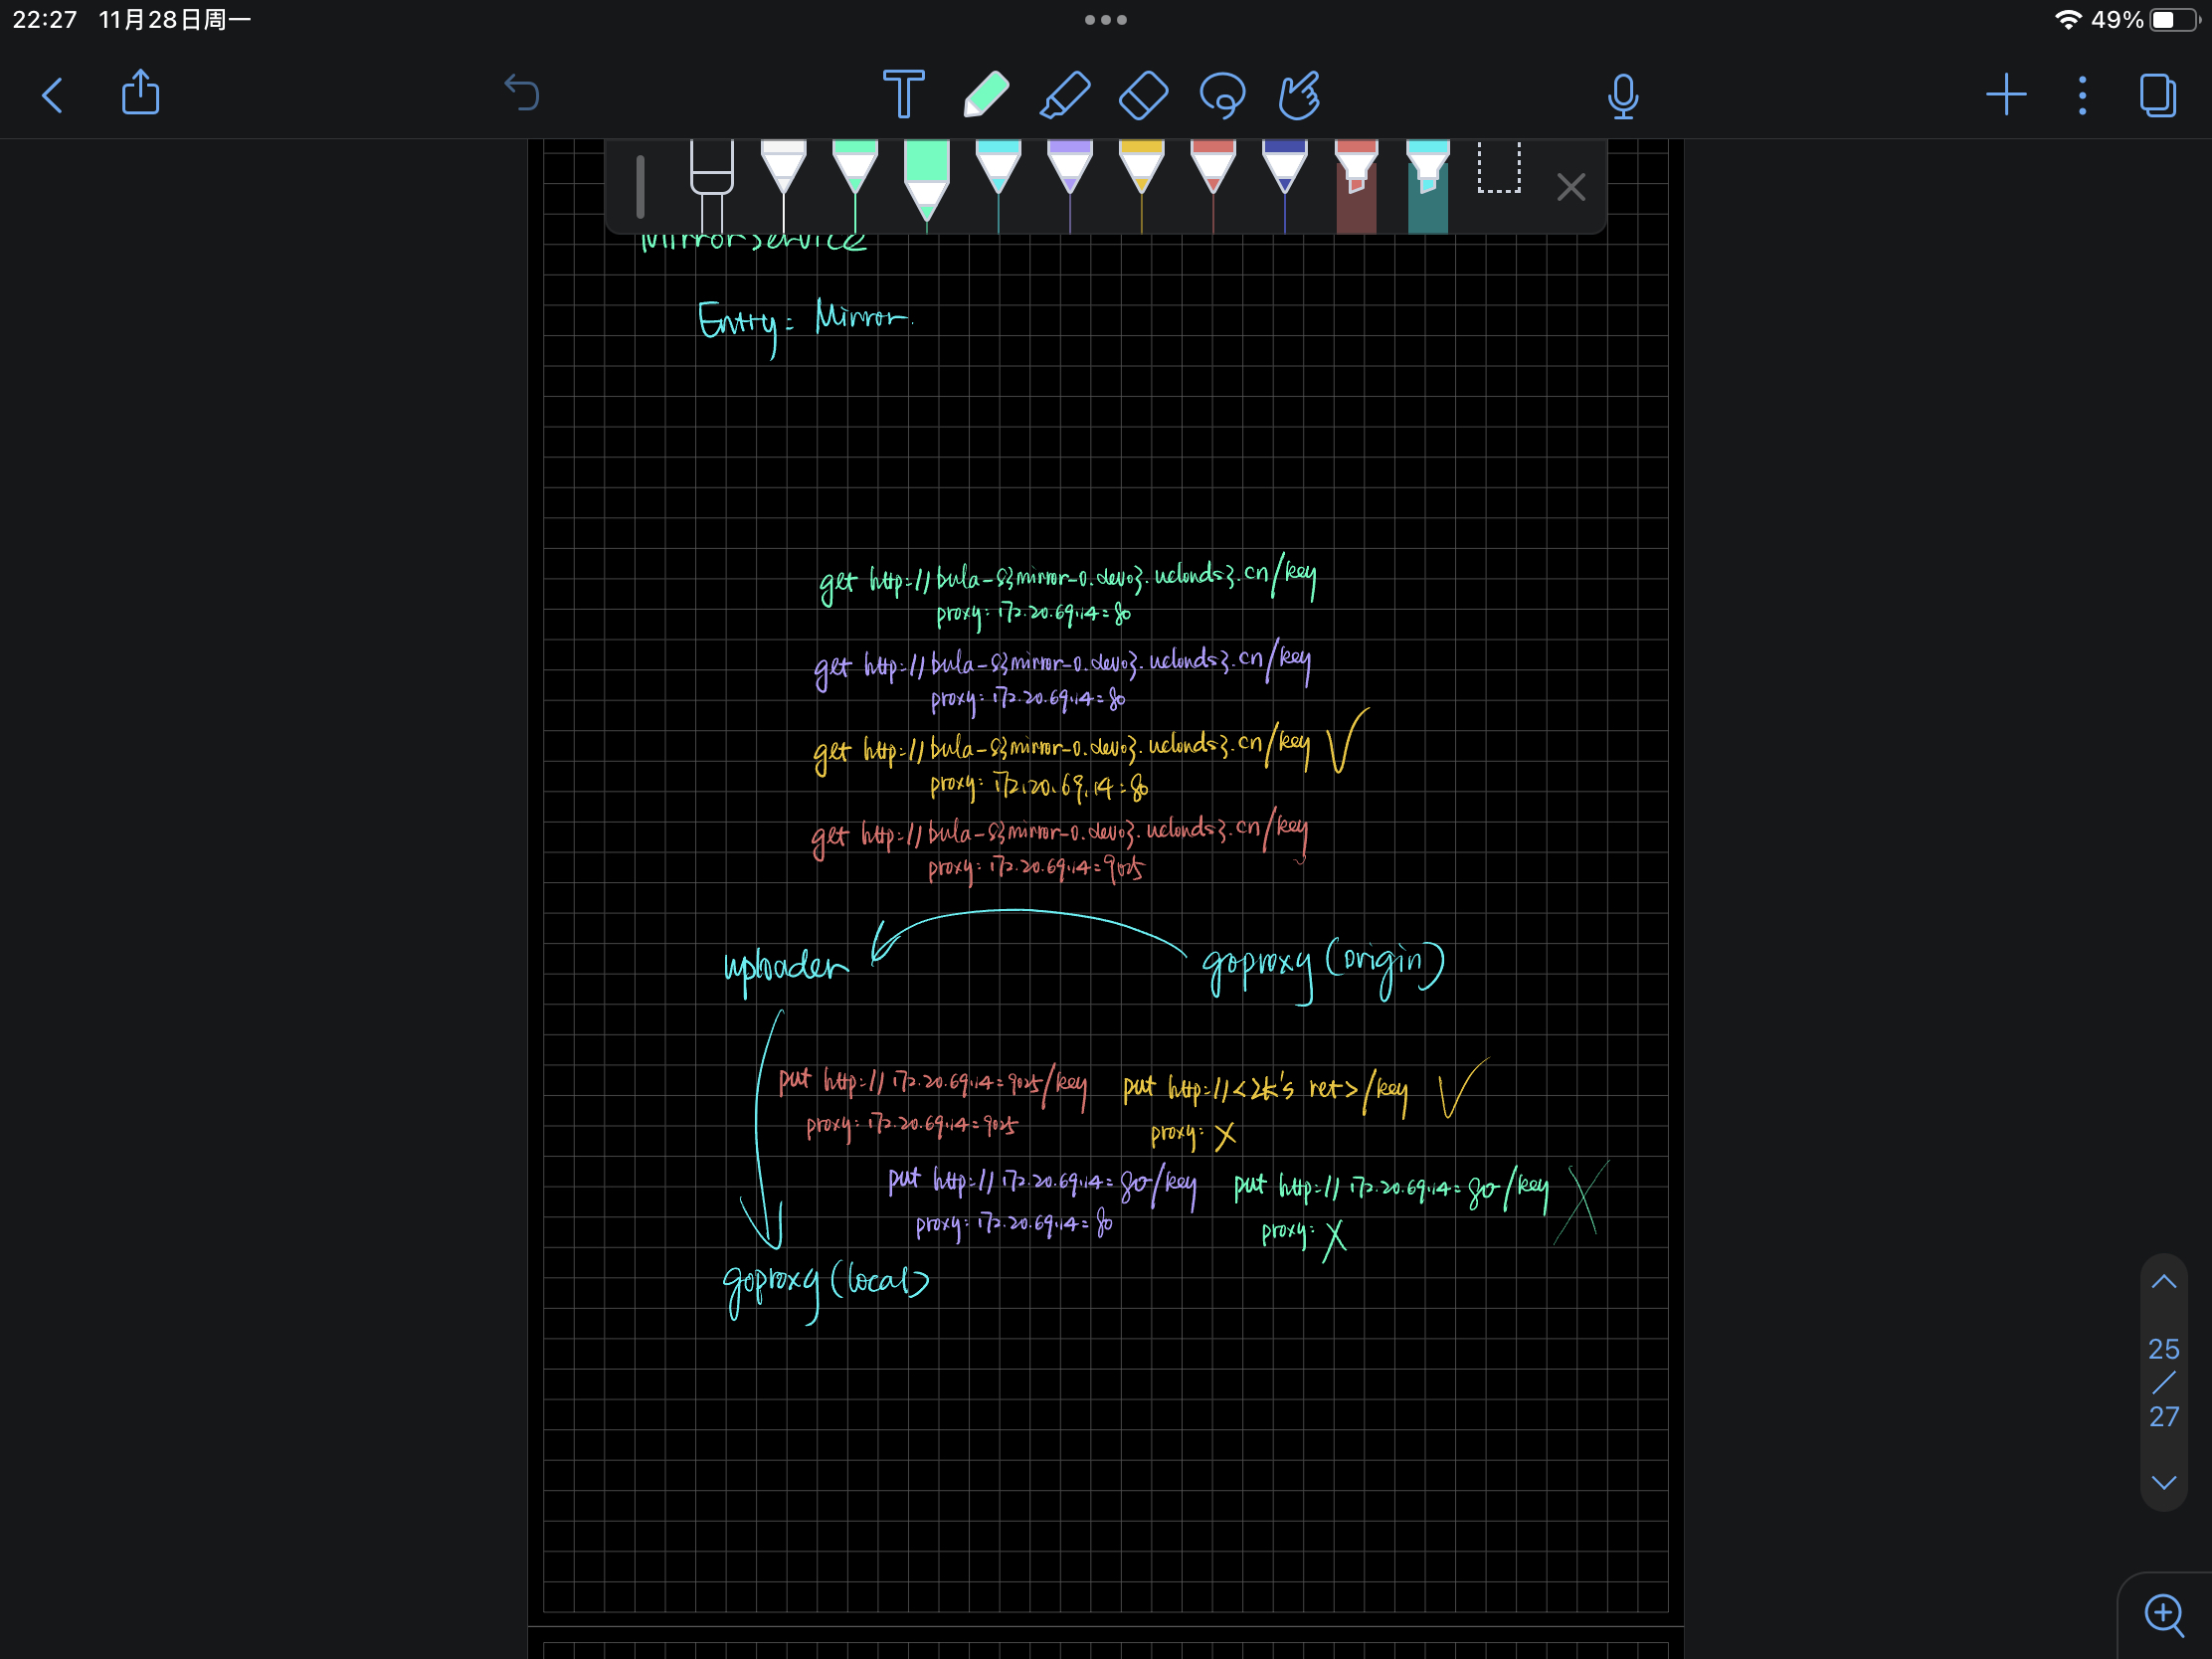 22:27 11月28日周一
49%
MirrorService
Entry: Mirror.
get http://bula-s3mirror-0.dev03.uclouds3.cn/key
proxy: 172.20.69.14:80
get http://bula-s3mirror-0.dev03.uclouds3.cn/key
proxy: 172.20.69.14:80
get http://bula-s3mirror-0.dev03.uclouds3.cn/key ✓
proxy: 172.20.69.14:80
get http://bula-s3mirror-0.dev03.uclouds3.cn/key
proxy: 172.20.69.14:9025
uploader goproxy (origin)
put http://172.20.69.14:9025/key put http://<zk's ret>/key ✓
proxy: 172.20.69.14:9025 proxy: X
put http://172.20.69.14:80/key put http://172.20.69.14:80/key X
proxy: 172.20.69.14:80 proxy: X
goproxy (local)
25
/
27